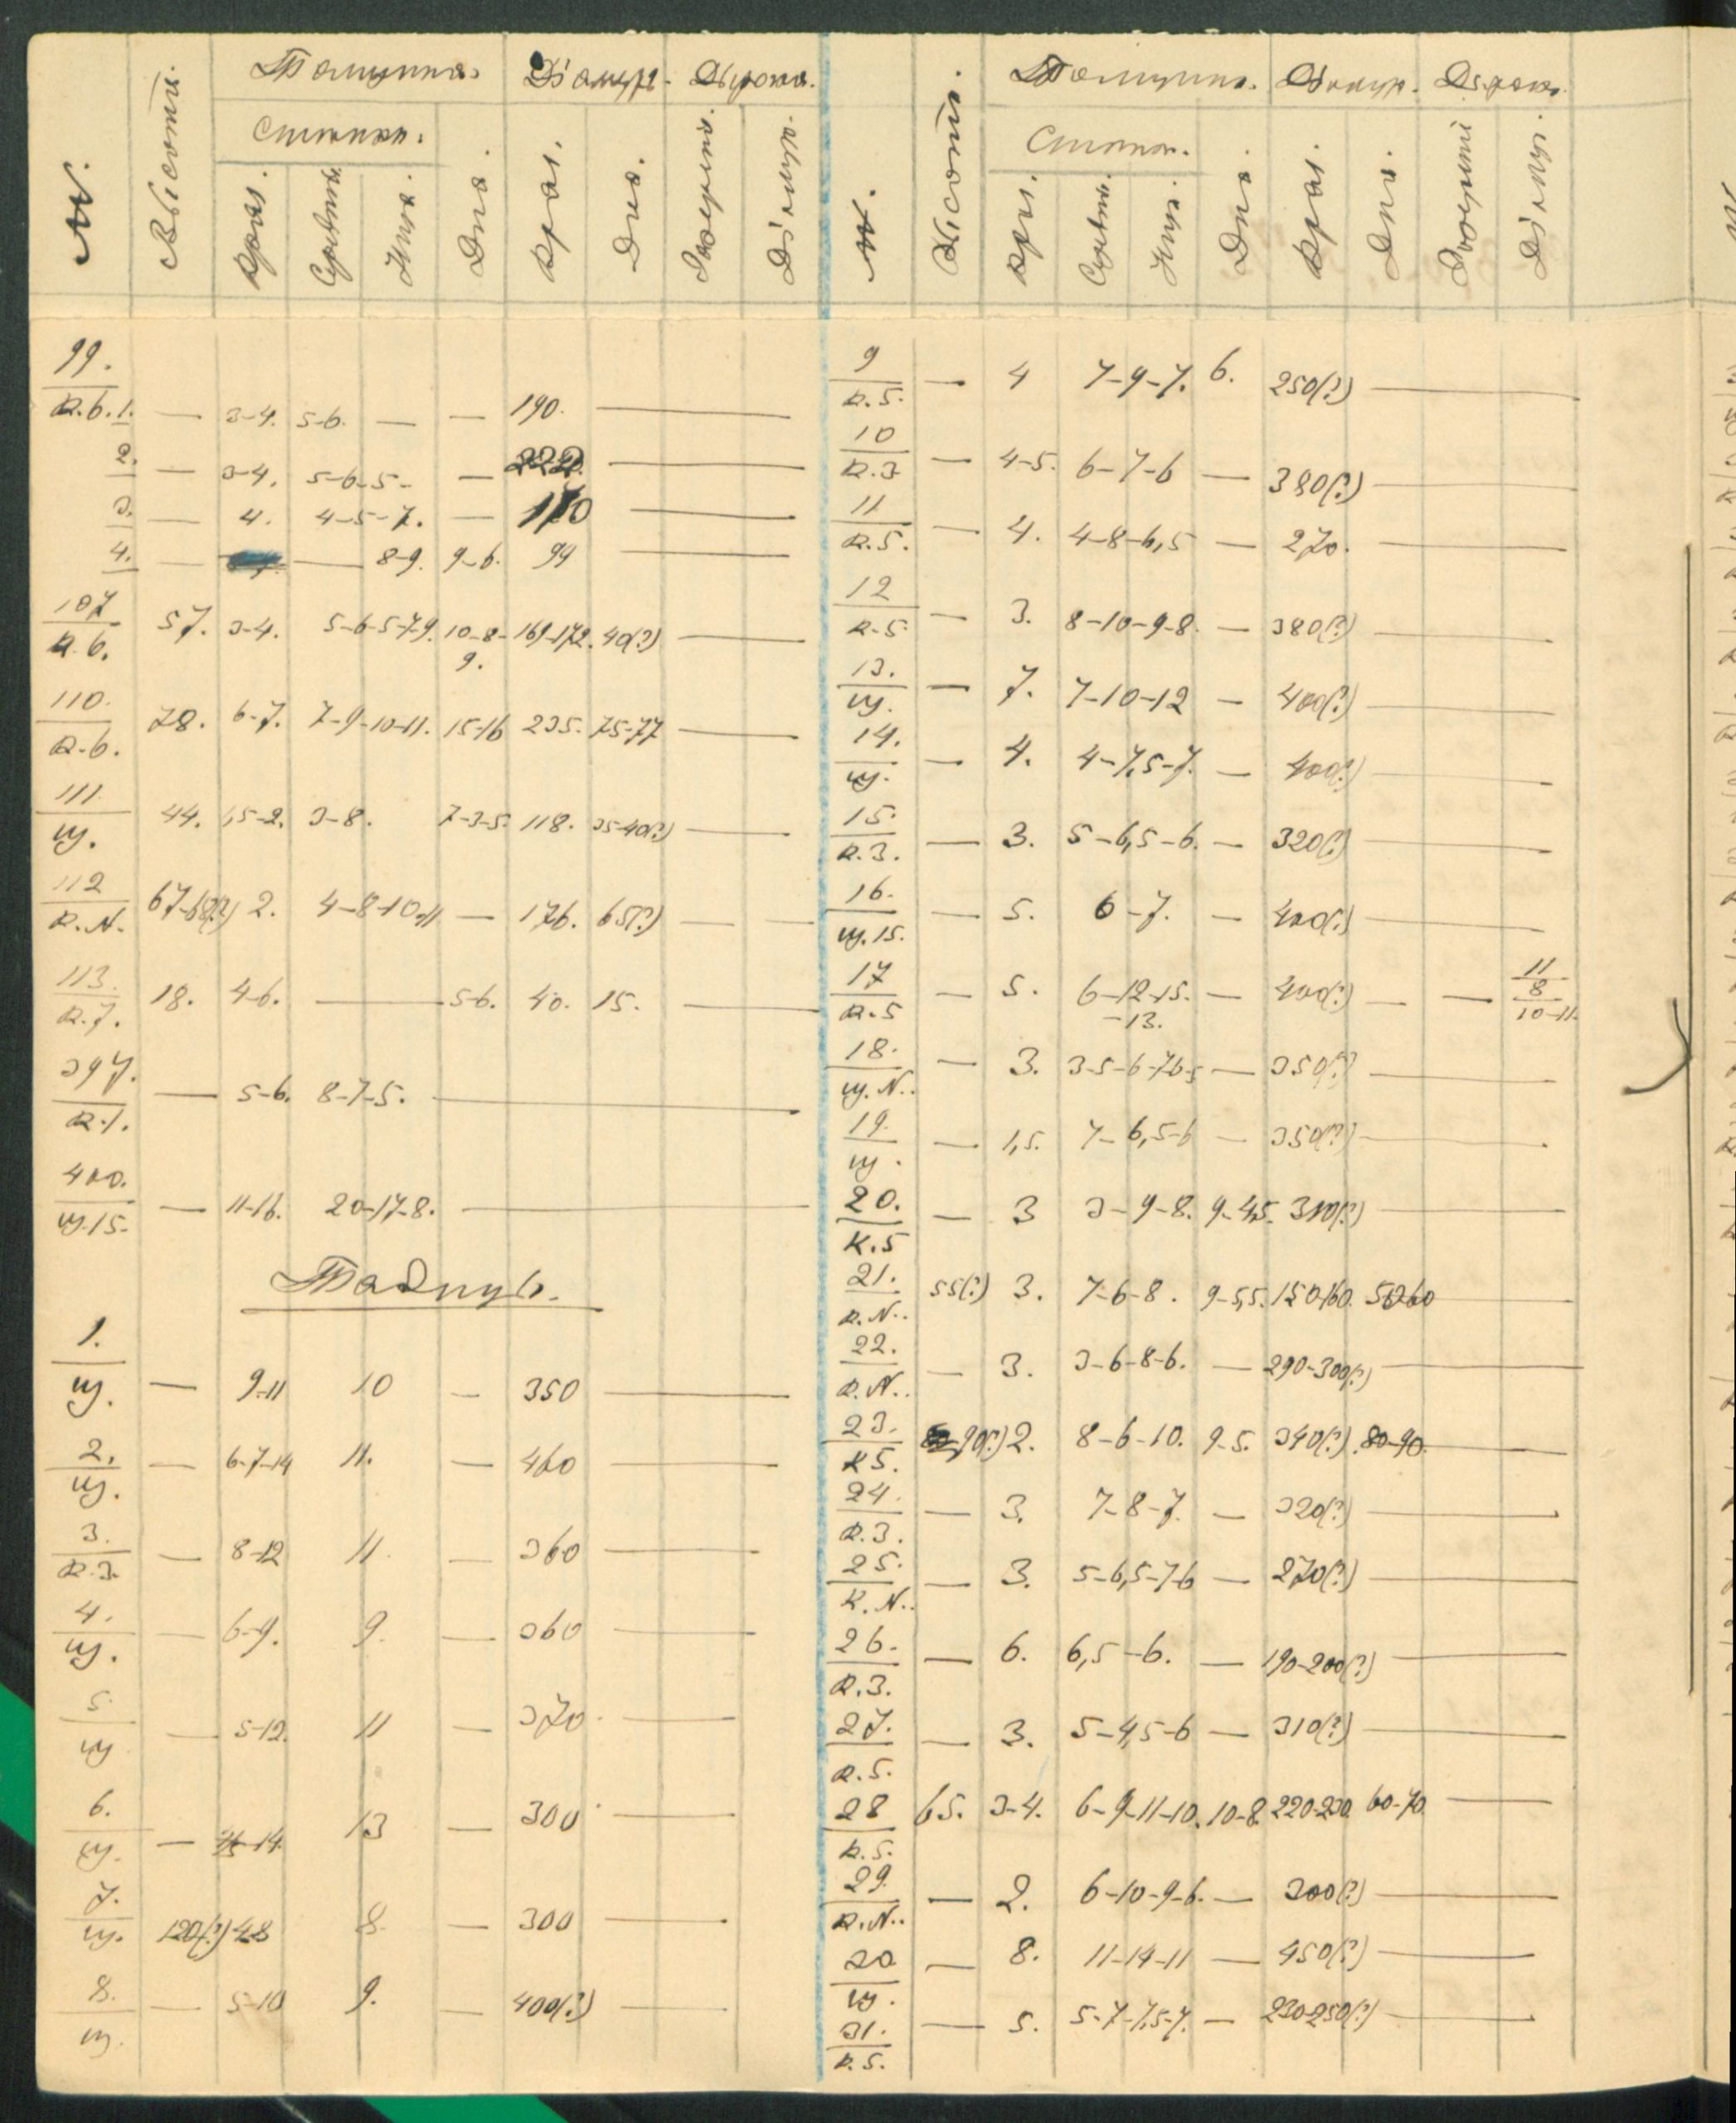 №. Высота. Толщина. Діаметр. Дырочки.
Стѣнки. Дна. Края. Дна.
Края. Середины. Діаметр.
99.
К.6.1. — 3-4. 5-6. — — 190. —
2. — 3-4. 5-6-5- — 222. —
3. — 4. 4-5-7. — 170 —
4. — — 8-9. 9-6. 99 —
107
К.6. 57. 3-4. 5-6-5-7-9. 10-8-9. 169-172. 40(?) —
110.
К.6. 78. 6-7. 7-9-10-11. 15-16 235. 75-77 —
111.
щ. 44. 1,5-2. 3-8. 7-3-5. 118. 35-40(?) —
112
К.N. 67-68(?) 2. 4-8-10-11 — 176. 65(?) —
113.
К.7. 18. 4-6. — 5-6. 40. 15. —
397.
К.1. — 5-6. 8-7-5. —
400.
щ.15. — 11-16. 20-17-8. —
1.
щ. — 9-11 10 — 350 —
2.
щ. — 6-7-14 11. — 460 —
3.
К.3. — 8-12 11. — 360 —
4.
щ. — 6-9. 9. — 360 —
5.
щ — 5-12. 11 — 370. —
6.
щ. — 14. 13 — 300 —
7.
щ. 120(?) 4-8 8. — 300 —
8.
щ. — 5-10 9. — 400(?) —
№. Высота. Толщина. Діаметр. Дырочки.
Стѣнки. Дна. Края. Дна.
Края. Діаметр.
9
К.5. — 4 7-9-7. 6. 250(?) —
10
К.3 — 4-5. 6-7-6 — 380(?) —
11
К.5. — 4. 4-8-6,5 — 270. —
12
К.5. — 3. 8-10-9-8. — 380(?) —
13.
щ. — 7. 7-10-12 — 400(?) —
14.
щ. — 4. 4-7,5-7. — 400(?) —
15.
К.3. — 3. 5-6,5-6. — 320(?) —
16.
щ.15. — 5. 6-7. — 400(?) —
17
К.5 — 5. 6-12-15.-13. — 400(?) — — 11 8 10-11.
18.
щ.N. — 3. 3-5-6-7-6-5 — 350(?) —
19.
щ. — 1,5. 7-6,5-6 — 350(?) —
20.
К.5 — 3 3-9-8. 9-4,5. 310(?) —
21.
К.N. 55(?) 3. 7-6-8. 9-5,5. 150-160. 50-60 —
22.
К.N. — 3. 3-6-8-6. — 290-300(?) —
23.
К5. 90(?) 2. 8-6-10. 9-5. 340(?). 80-90.
24.
К.3. — 3. 7-8-7. — 320(?) —
25.
К.N. — 3. 5-6,5-7-6 — 270(?) —
26.
К.3. — 6. 6,5-6. — 190-200(?) —
27.
К.5. — 3. 5-4,5-6 — 310(?) —
28
К.5. 65. 3-4. 6-9-11-10. 10-8. 220-230. 60-70. —
29.
К.N. — 2. 6-10-9-6. — 300(?) —
30
щ. — 8. 11-14-11 — 450(?) —
31.
К.5. — 5. 5-7-7,5-7. — 230-250(?) —